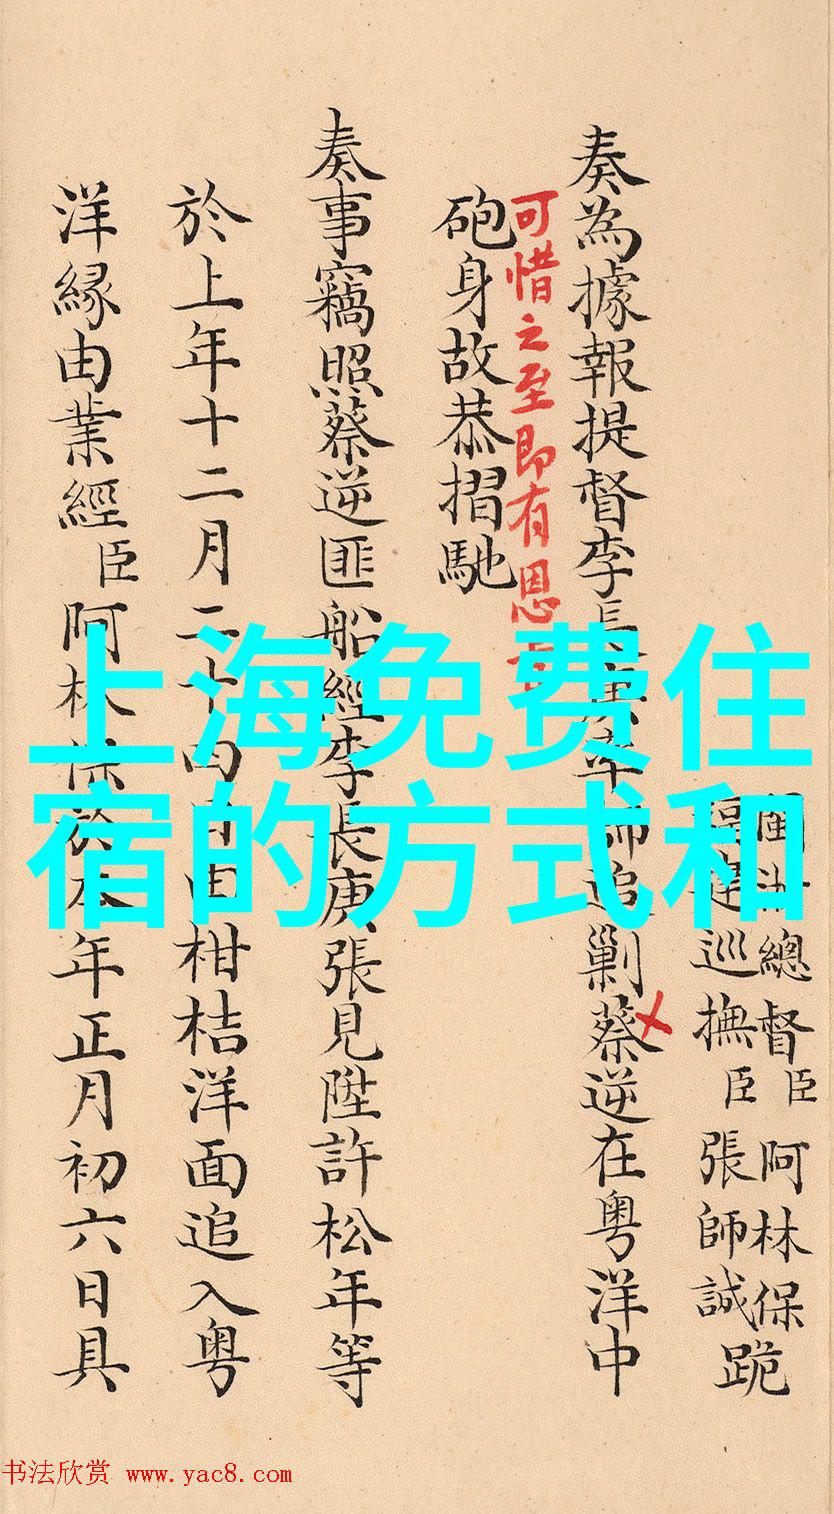 上海免费住
宿的方式和
閩浙總督臣阿林保
福建巡撫臣張師誠
跪
奏為據報提督李長庚率師追剿蔡逆在粤洋中
可惜之至即有恩
砲身故恭摺馳
奏事竊照蔡逆匪船經李長庚張見陞許松年等
於上年十二月二十四日由柑桔洋面追入粤
洋緣由業經臣阿林保於本年正月初六日具
书法欣赏 www.yac8.com